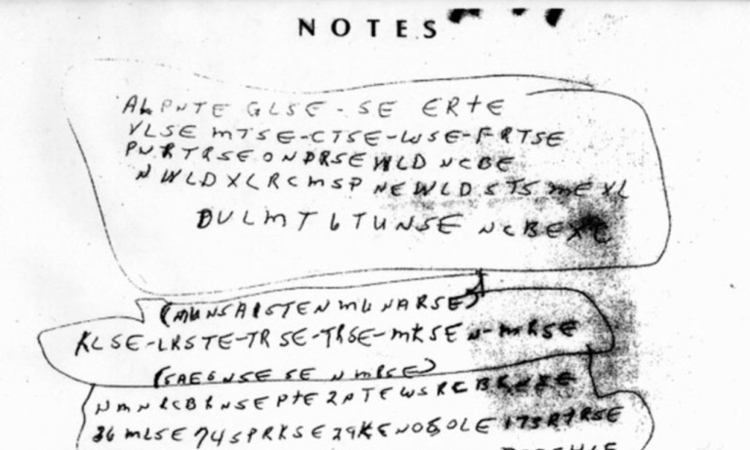 NOTES
ALPNTE GLSE-SE ERTE
VLSE MTSE-CTSE-WSE-FRTSE
PNRTRSEONDRSEWLD NCBE
NWLDXLRCMSP NEWLDSTS MEXL
DULMT6TUNSE NCBEXC
(MUNSAISTENMUNARSE)
KLSE-LRSTE-TRSE-TRSE-MKSEN-MRSE
(SAE6NSESE NMRSE)
NMNRCBRNSEPTE2PTEWSRCBRNSE
36MLSE74SPRKSE29KENOSOLE173RTRSE